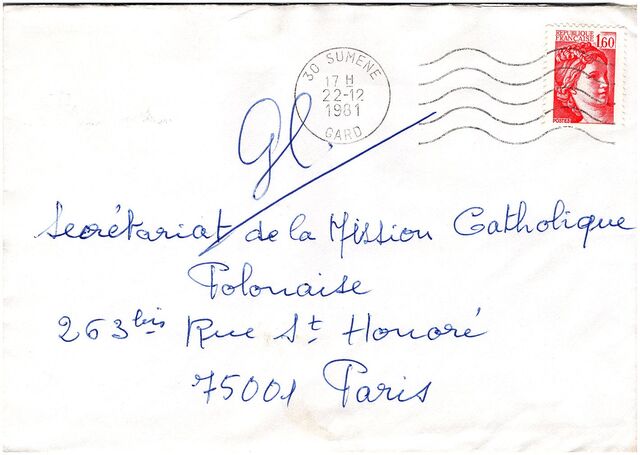 30 SUMENE
17 H
22-12
1981
GARD
REPUBLIQUE
FRANÇAISE
1,60
Gl.
Secrétariat de la Mission Catholique
Polonaise
263 bis Rue St Honoré
75001 Paris